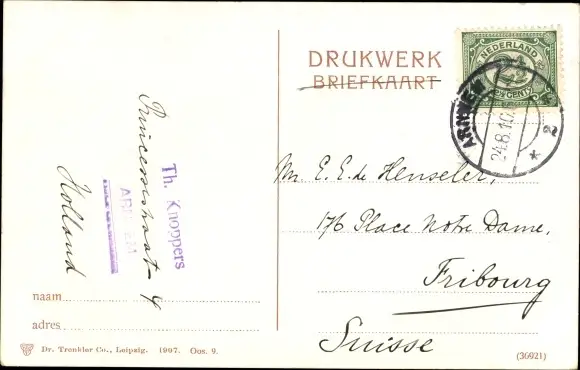 DRUKWERK
BRIEFKAART
NEDERLAND
2½
CENT
ARNHEM
24.8.10
* 2
Mr. E. E. de Henseler,
176 Place Notre Dame,
Fribourg
Suisse
Th. Knoppers
ARNHEM
Princessestraat 4
Holland
naam
adres
Dr. Trenkler Co., Leipzig. 1907. Oos. 9.
(36921)